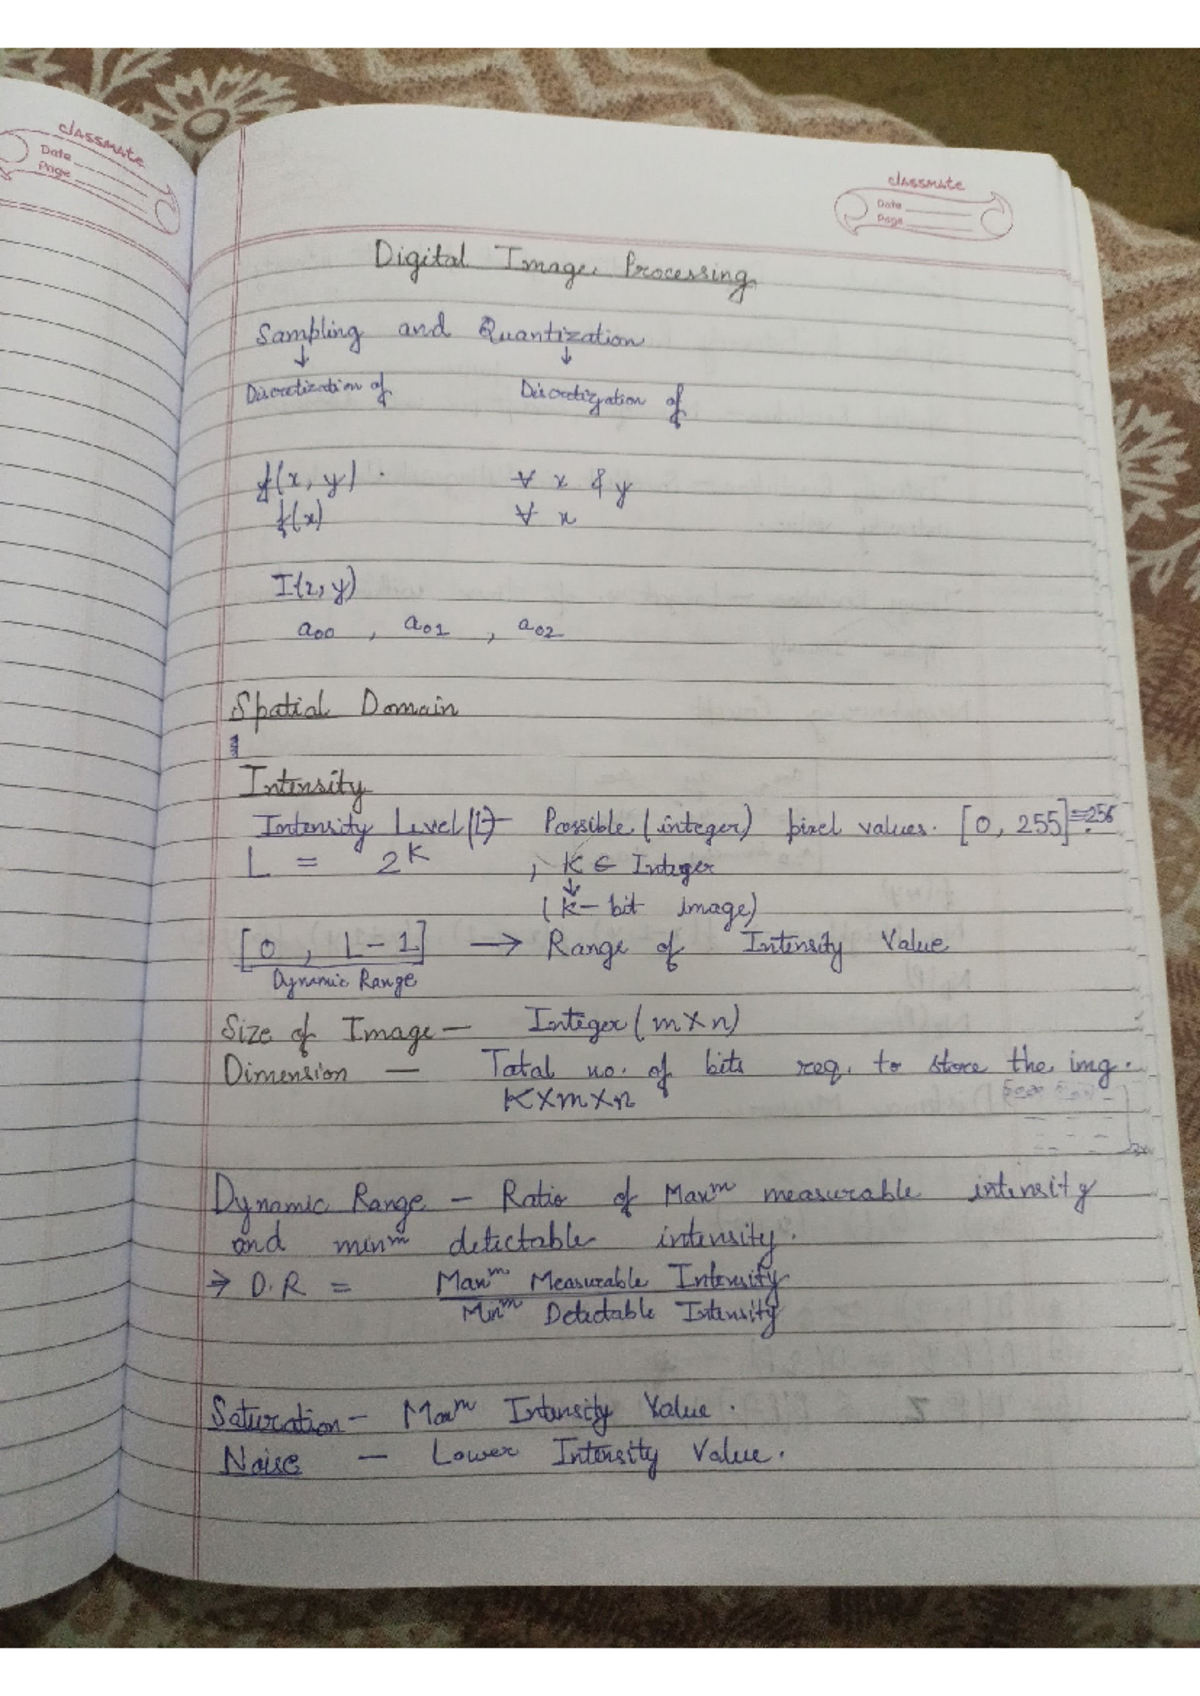 classmate
Date
Page
classmate
Date
Page
Digital Image Processing
Sampling and Quantization
↓ ↓
Discretization of Discretization of
f(x, y) . ∀ x & y
f(x) ∀ x
I(x, y)
a00 , a01 , a02
Spatial Domain
Intensity
Intensity Level (L) - Possible (integer) pixel values. [0, 255] = 256
L = 2^K , K ∈ Integer
↓
(k-bit image)
[0 , L-1] → Range of Intensity Value
Dynamic Range
Size of Image — Integer (m×n)
Dimension — Total no. of bits req. to store the img.
K×m×n
Dynamic Range — Ratio of Max^m measurable intensity
and min^m detectable intensity.
⇒ D.R = Max^m Measurable Intensity
Min^m Detectable Intensity
Saturation — Max^m Intensity Value.
Noise — Lower Intensity Value.